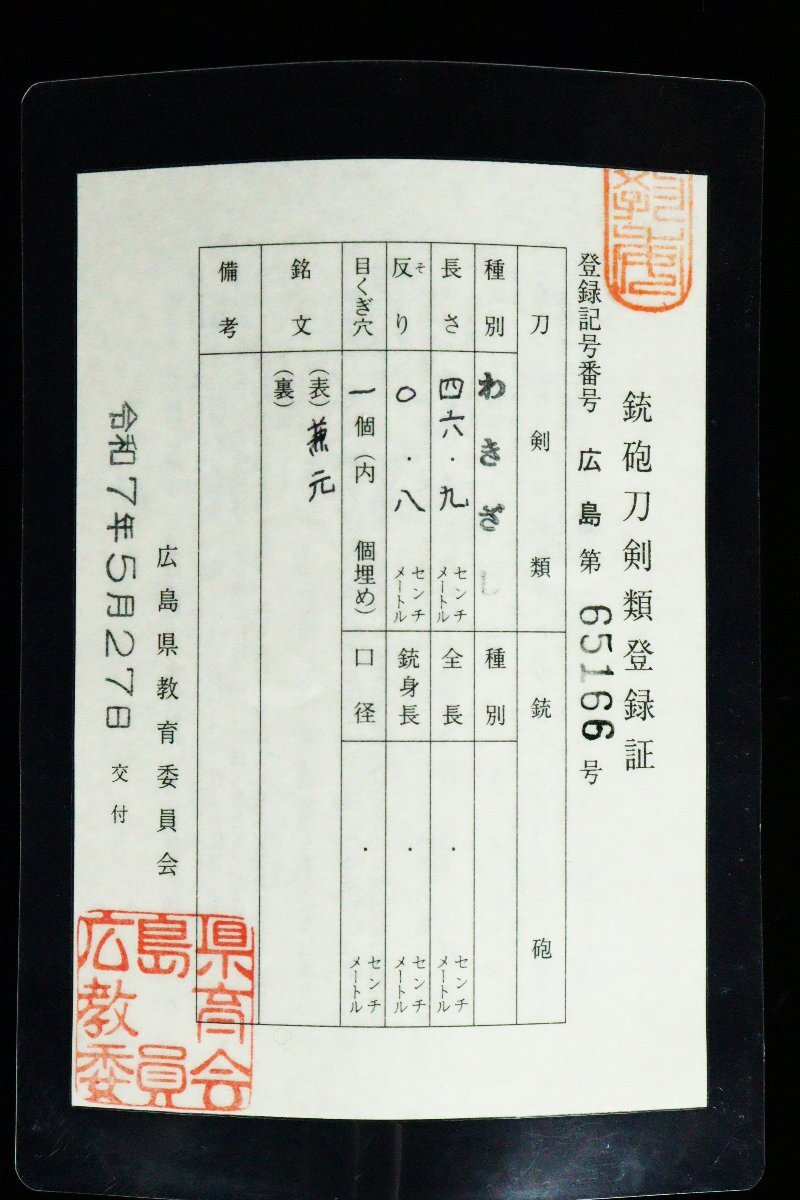 銃砲刀剣類登録証
登録記号番号 広島 第 65166 号
刀剣類
銃砲
種別 わきざし
種別
長さ 四六・九 センチメートル
全長 ・ センチメートル
反り そ 〇・八 センチメートル
銃身長 ・ センチメートル
目くぎ穴 一個(内 個埋め)
口径 ・ センチメートル
銘文 (表) 兼元
(裏)
備考
広島県教育委員会
令和7年5月27日 交付
県育会
島員
広教委